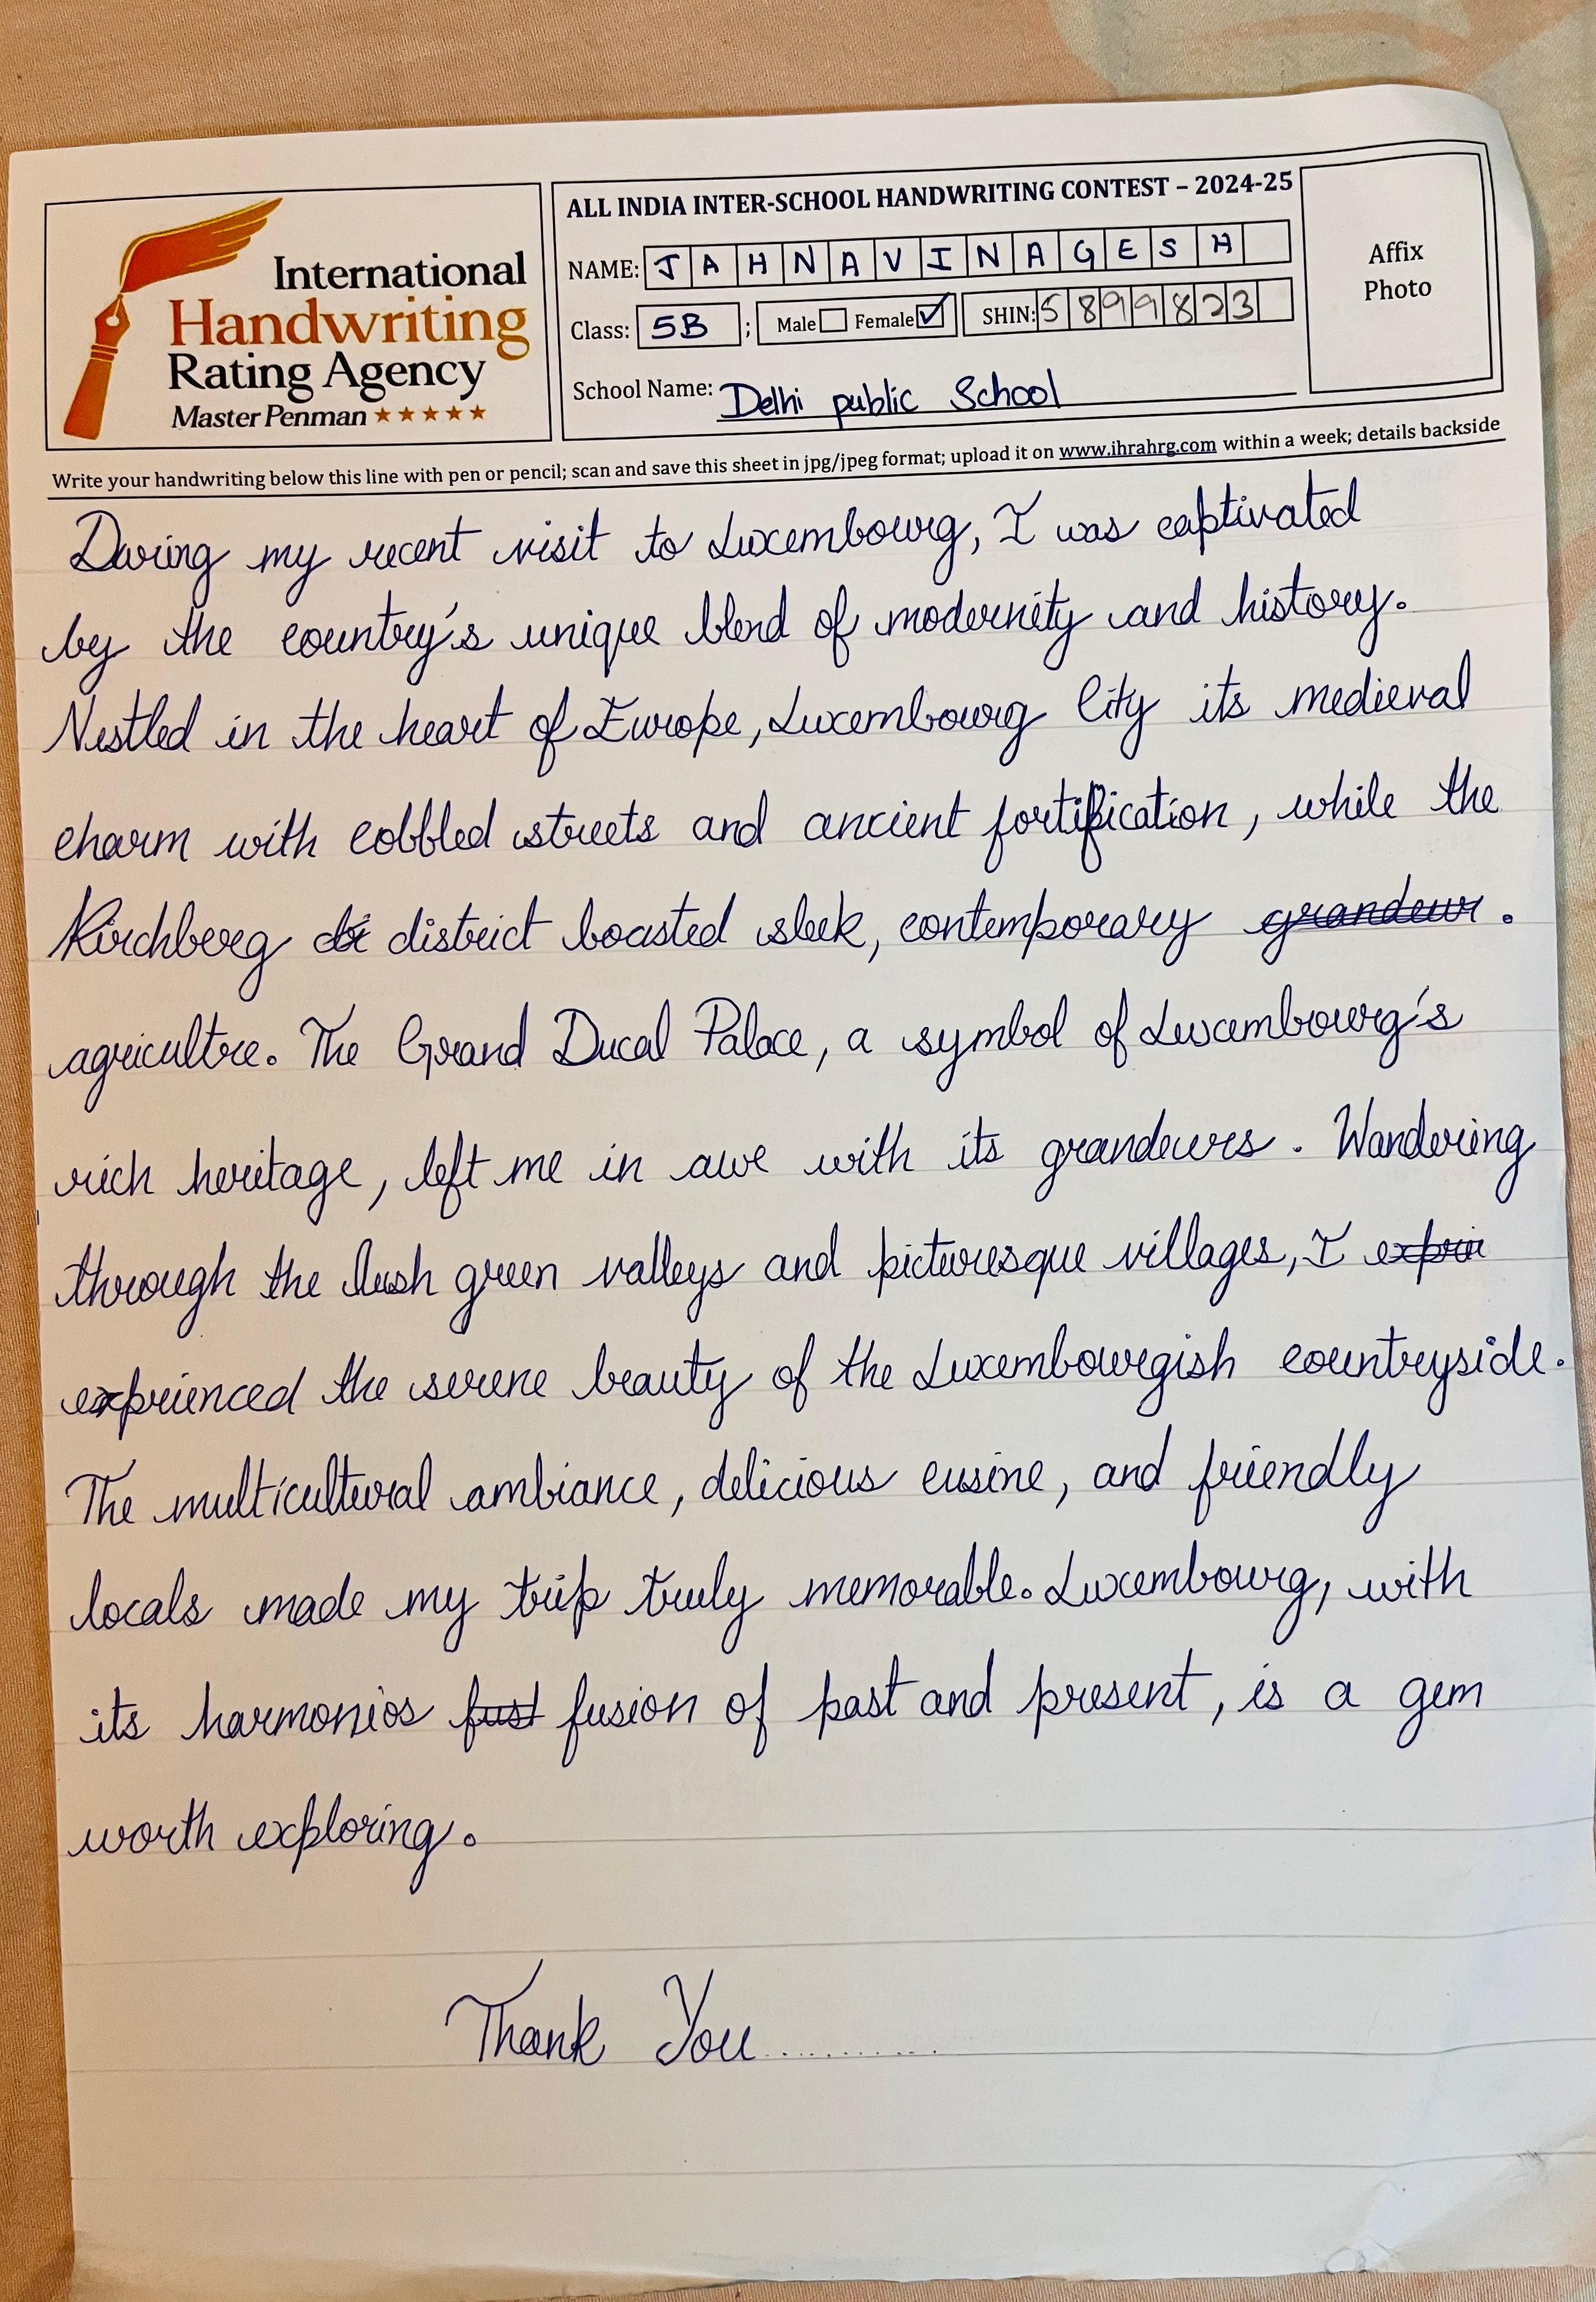 International
Handwriting
Rating Agency
Master Penman ★★★★★
ALL INDIA INTER-SCHOOL HANDWRITING CONTEST – 2024-25
NAME: JAHNAVINAGESH
Class: 5B ; Male Female ✓ SHIN: 5899823
School Name: Delhi public School
Affix
Photo
Write your handwriting below this line with pen or pencil; scan and save this sheet in jpg/jpeg format; upload it on www.ihrahrg.com within a week; details backside
During my recent visit to Luxembourg, I was captivated
by the country's unique blend of modernity and history.
Nestled in the heart of Europe, Luxembourg City its medieval
charm with cobbled streets and ancient fortification, while the
Kirchberg di district boasted sleek, contemporary grandeur.
agricultre. The Grand Ducal Palace, a symbol of Luxembourg's
rich heritage, left me in awe with its grandeurs. Wandering
through the lush green valleys and picturesque villages, I exprin
exprienced the serene beauty of the Luxembourgish countryside.
The multicultural ambiance, delicious cusine, and friendly
locals made my trip truly memorable. Luxembourg, with
its harmonios fust fusion of past and present, is a gem
worth exploring.
Thank You..........